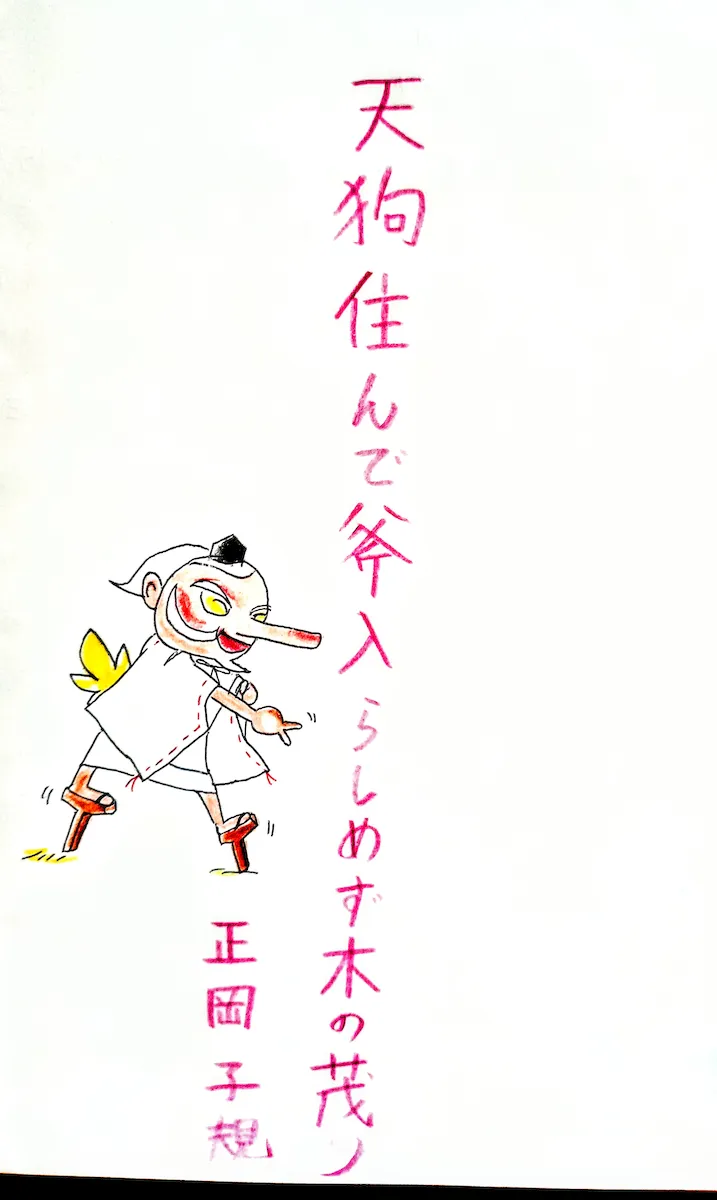 天狗住んで斧入らしめず木の茂り
正岡子規